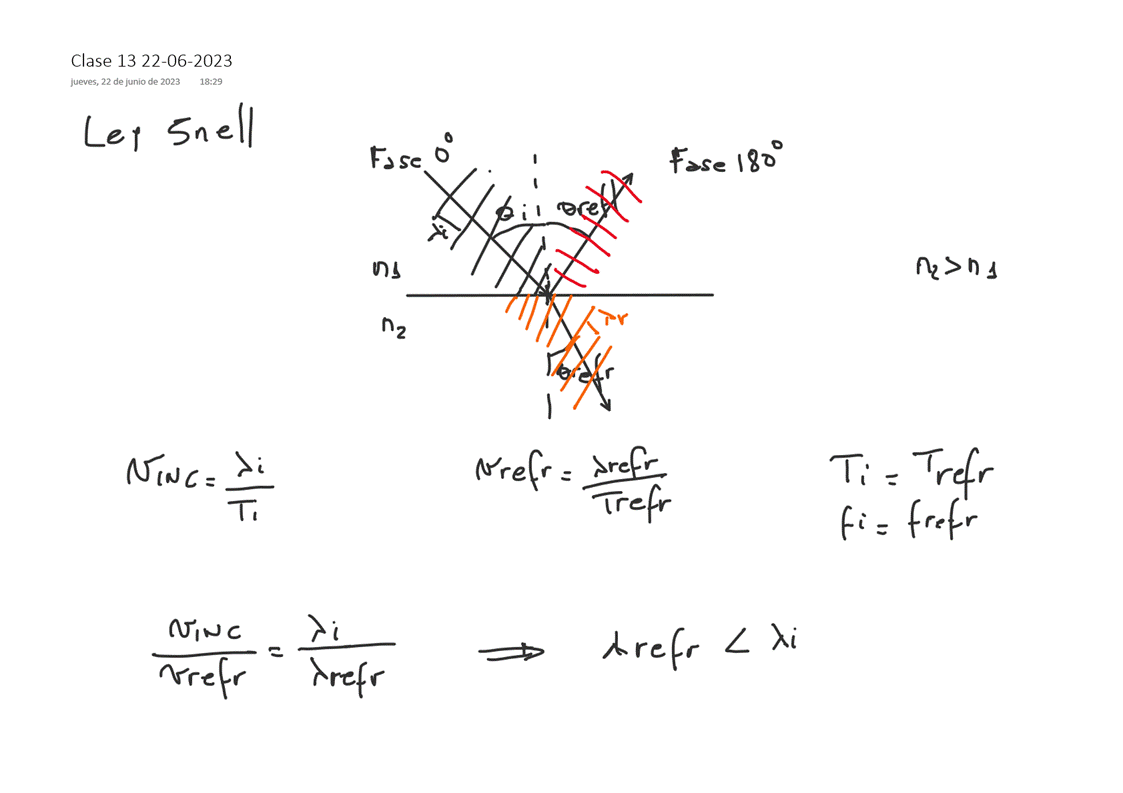 Clase 13 22-06-2023
jueves, 22 de junio de 2023 18:29
Ley Snell
Fase 0°
Fase 180°
θi θref
λi
n1
n2 > n1
n2
λr
θrefr
vINC = λi / Ti
vrefr = λrefr / Trefr
Ti = Trefr
fi = frefr
vINC / vrefr = λi / λrefr ⟹ λrefr < λi